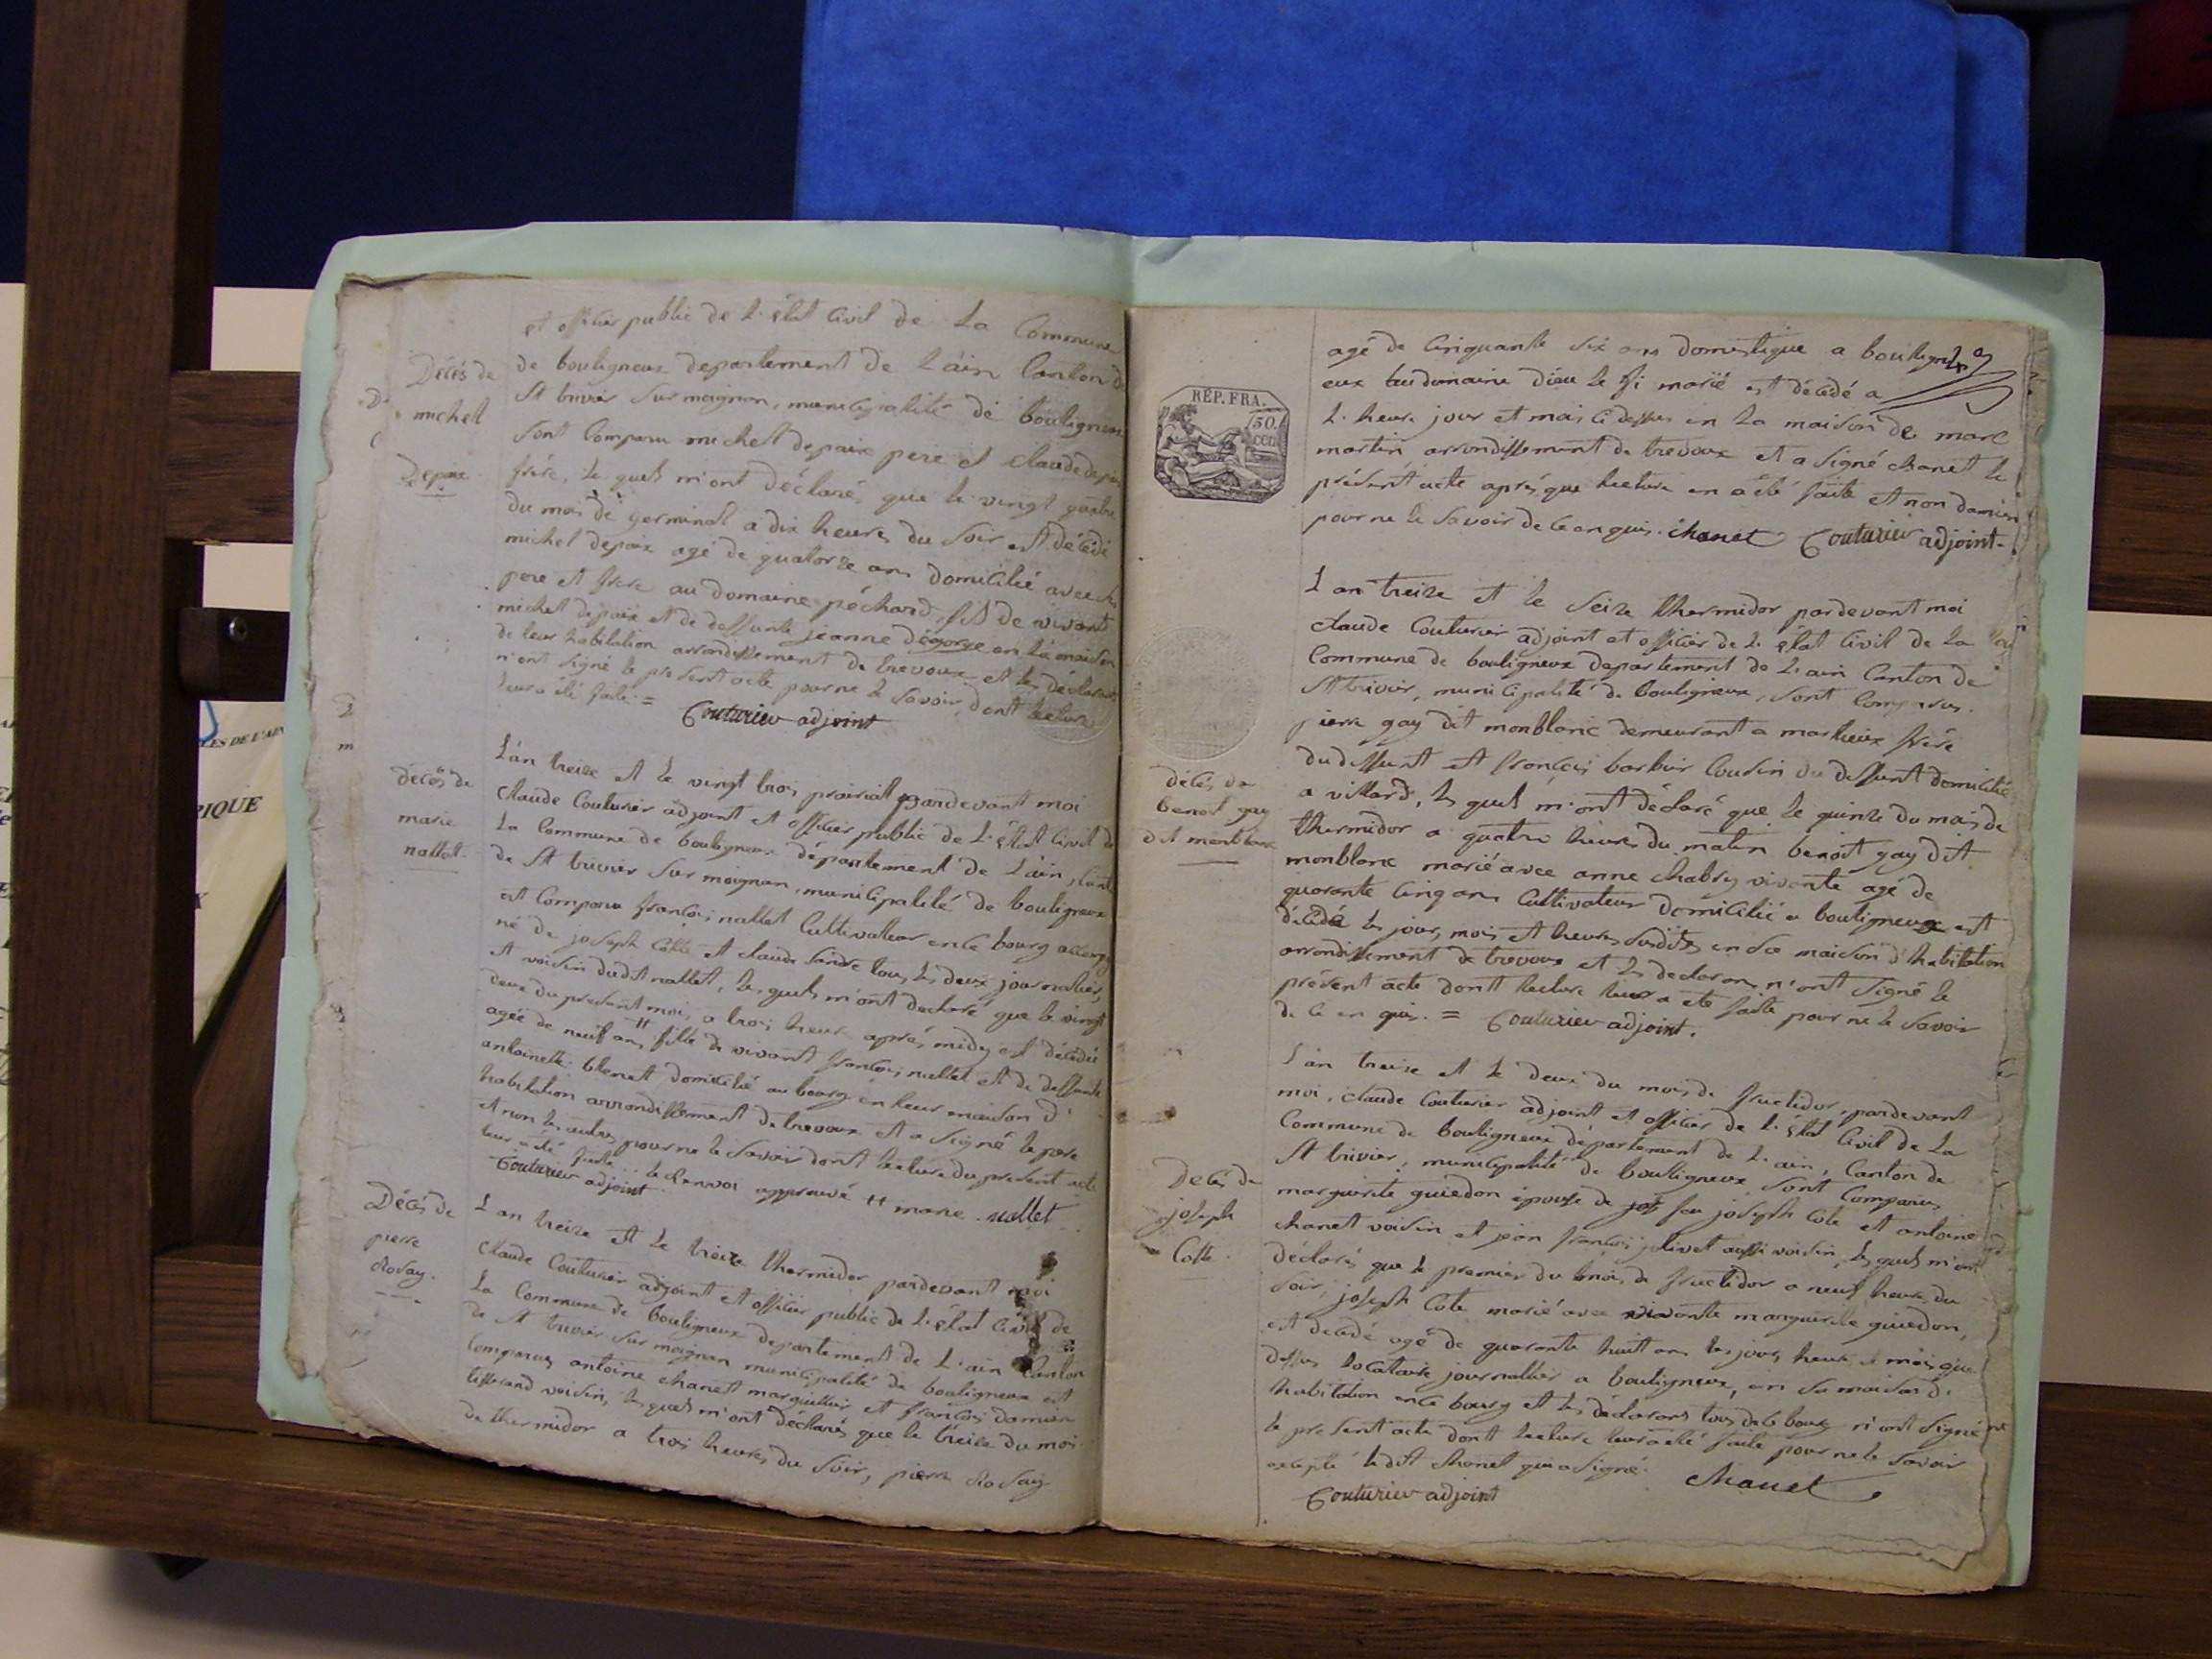 et officier public de l'état civil de la Commune
Décès de
michell
Depaix
de bouligneux departement de l'ain Canton de
St trivier sur moignan, municipalité de bouligneux
sont Comparu michell depaix pere et claude depaix
frère, lesquels m'ont déclaré que le vingt quatre
du mois de germinal a dix heures du soir est décédé
michel depaix agé de quatorze ans domicilié avec ses
pere et frere au domaine péchard, fils de vivant
michel depaix et de deffunte jeanne dégorge en la maison
de leur habitation arrondissement de trevoux et les déclarants
n'ont signé le present acte pour ne le savoir, dont lecture
leur a été faite. = Couturier adjoint
décès de
marie
nallet.
L'an treize et le vingt trois prairial pardevant moi
Claude Couturier adjoint et officier public de l'état Civil de
la Commune de bouligneux département de l'ain, Canton
de St trivier sur moignan, municipalité de bouligneux
est Comparu françois nallet Cultivateur en ce bourg
né de joseph Cotte et claude tous les deux journalier,
et voisin dudit nallet, lesquels m'ont declaré que le vingt
deux du present mois a trois heure après midy est décédée
agée de neuf ans, fille de vivant françois nallet et de deffunte
antoinette domicilié au bourg en leur maison d'
habitation arrondissement de trevoux et a signé le pere
et non les autres pour ne le savoir dont lecture du present acte
leur a été faite. le Renvoi approuvé ++ marie. nallet
Couturier adjoint
Décès de
pierre
Rosay.
L'an treize et le treize thermidor pardevant moi
Claude Couturier adjoint et officier public de l'état Civil de
la Commune de bouligneux departement de l'ain Canton
de St trivier sur moignan municipalité de bouligneux est
comparus antoine chanet marguillier et françois damien
tisserand voisin, lesquels m'ont déclarés que le treize du mois
de thermidor a trois heures du soir, pierre Rosay
RÉP. FRA.
50.
cen.
agé de Cinquante six ans domestique a boulign
eux non marié est décédé a
l'heure jour et mois ci dessus en la maison de marc
martin arrondissement de trevoux et a signé chanet le
présent acte après que lecture en a été faite et non damien
pour ne le savoir de ce enquis. chanet Couturier adjoint.
L'an treize et le seize thermidor pardevant moi
claude Couturier adjoint et officier de l'état Civil de la
Commune de bouligneux departement de l'ain Canton de
St trivier, municipalité de bouligneux, sont Comparus.
pierre gay dit monblanc demeurant a marlieux frère
du deffunt et françois barbier Cousin du deffunt domicilié
décès de
benoit gay
dit montblanc
a villard, lesquels m'ont déclaré que le quinze du mois de
thermidor a quatre heures du matin benoit gay dit
monblanc marié avec anne chabry vivante agé de
quarante cinq ans Cultivateur domicilié a bouligneux est
décédé les jour, mois et heures susdits en sa maison d'habitation
arrondissement de trevoux et les declarans n'ont signé le
présent acte dont lecture leur a été faite pour ne le savoir
de ce en quis. = Couturier adjoint.
L'an treize et le deux du mois de fructidor, pardevant
moi, claude Couturier adjoint et officier de l'état Civil de la
Commune de bouligneux département de l'ain, Canton de
St trivier, municipalité de bouligneux sont Comparus
Décès de
joseph
Cotte.
marguerite guiedon épouse de jos feu joseph Cote et antoine
chanet voisin et jean françois jolivet aussi voisin, lesquels m'ont
déclaré que le premier du mois de fructidor a neuf heure du
soir, joseph Cote marié avec vivante marguerite guiedon,
est decedé agé de quarante huit ans les jour, heure et mois que
dessus locataire journallier a bouligneux, en sa maison d'
habitation en ce bourg et les déclarans tous de ce bourg n'ont signé
le present acte dont lecture leur a été faite pour ne le savoir
excepté ledit chanet qui a signé. chanet
Couturier adjoint